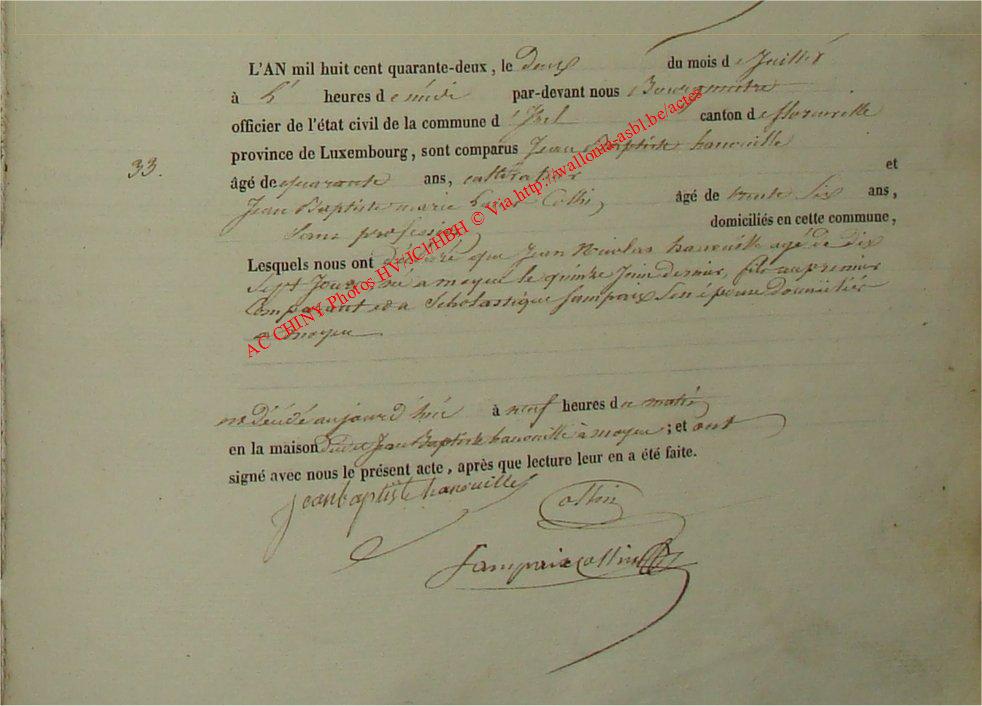 L'AN mil huit cent quarante-deux, le deux du mois de Juillet
à heures de midi par-devant nous Bourgmestre
officier de l'état civil de la commune d'Izel canton de florenville
province de Luxembourg, sont comparus Jean Baptiste hanouille
33.
âgé de quarante ans, cultivateur et
Jean Baptiste marie Collin, âgé de trente Six ans,
Sans profession domiciliés en cette commune,
Lesquels nous ont déclaré que Jean Nicolas hanouille agé de Dix
Sept Jours né a moyen le quinze Juin dernier, fils au premier
Comparant et a Scholastique Sampaix Son épouse domiciliés
a moyen
est décédé aujourd'hui à neuf heures du matin
en la maison dudit Jean Baptiste hanouille à moyen; et ont
signé avec nous le présent acte, après que lecture leur en a été faite.
jean baptiste hanouille
Collin
Sampaix Collin
AC CHINY Photos HV-JCl/HBH © Via http://wallonia-asbl.be/actes